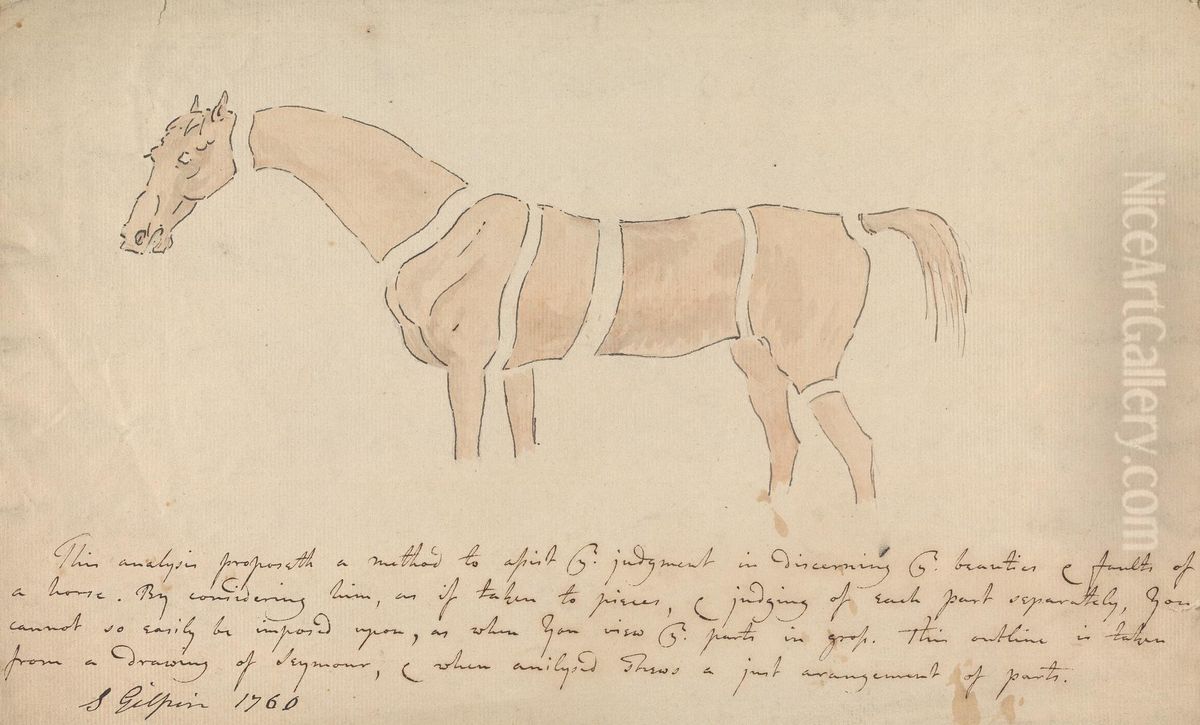 This analysis proposeth a method to assist yͤ. judgment in discerning yͤ. beauties & faults of
a horse. By considering him, as if taken to pieces, & judging of each part separately, you
cannot so easily be imposed upon, as when you view yͤ. parts in gross. This outline is taken
from a drawing of Seymour, & when anilysed shews a just arangement of parts.
S Gilpin 1760
NiceArtGallery.com